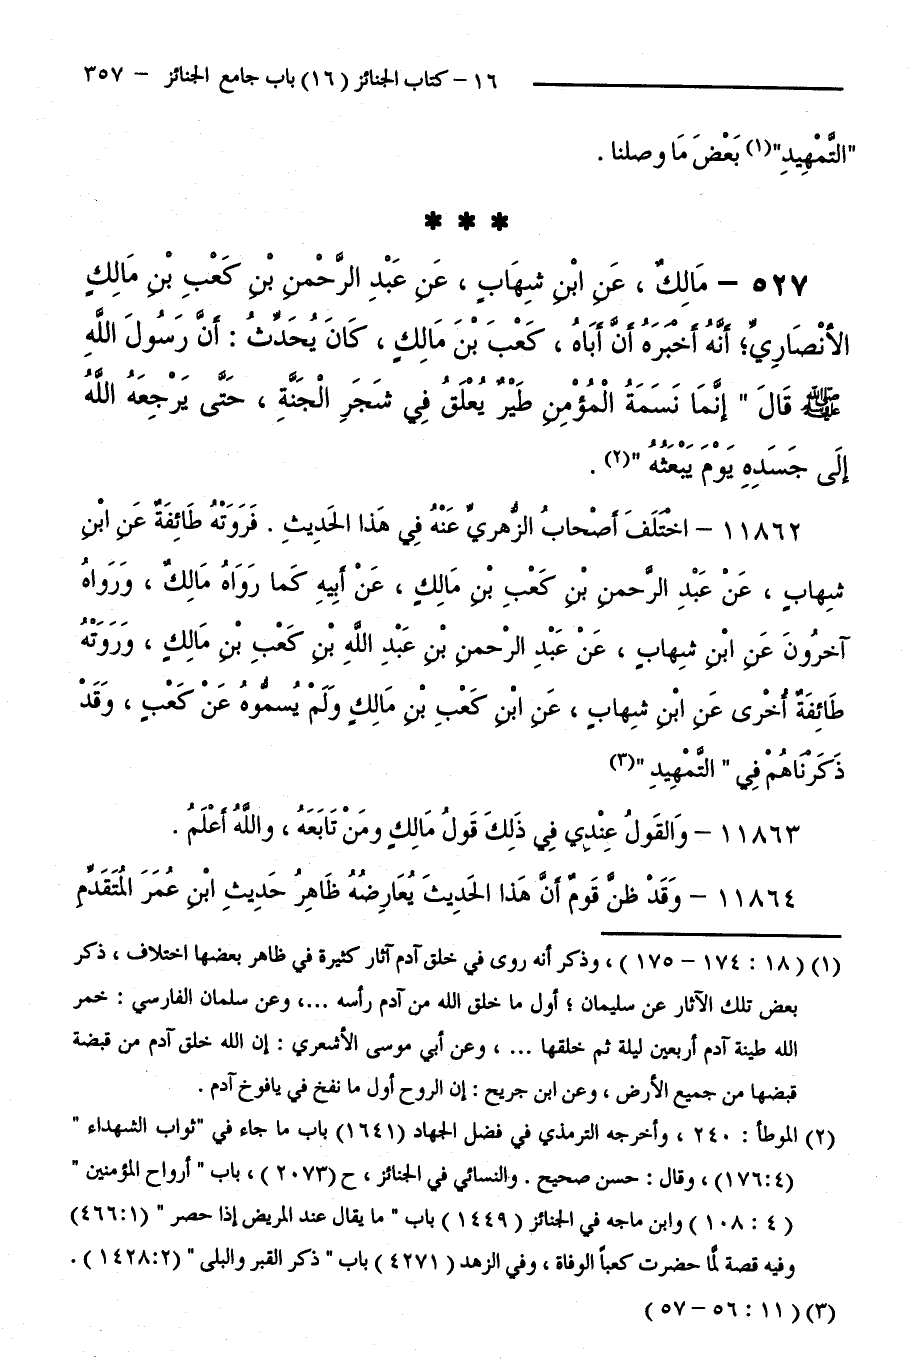 ١٦ – كتاب الجنائز (١٦) باب جامع الجنائز – ٣٥٧
"التَّمْهِيدِ"(١) بَعْضَ مَا وصلنا .
* * *
٥٢٧ – مَالِكٌ ، عَنِ ابْنِ شِهَابٍ ، عَنِ عَبْدِ الرَّحْمنِ بْنِ كَعْبِ بْنِ مَالِكٍ
الأَنْصَارِيِّ؛ أَنَّهُ أَخْبَرَهُ أَنَّ أَبَاهُ ، كَعْبَ بْنَ مَالِكٍ ، كَانَ يُحَدِّثُ : أَنَّ رَسُولَ اللَّهِ
ﷺ قَالَ " إِنَّمَا نَسَمَةُ الْمُؤْمِنِ طَيْرٌ يُعْلَقُ فِي شَجَرِ الْجَنَّةِ ، حَتَّى يَرْجِعَهُ اللَّهُ
إِلَى جَسَدِهِ يَوْمَ يَبْعَثُهُ "(٢) .
١١٨٦٢ – اخْتَلَفَ أَصْحَابُ الزُّهرِيِّ عَنْهُ فِي هَذا الحَدِيثِ . فَرَوَتْهُ طَائِفَةٌ عَنِ ابْنِ
شِهابٍ ، عَنْ عَبْدِ الرَّحمنِ بْنِ كَعْبِ بْنِ مَالِكٍ ، عَنْ أَبِيهِ كَما رَوَاهُ مَالِكٌ ، وَرَوَاهُ
آخرُونَ عَنِ ابْنِ شِهابٍ ، عَنْ عَبْدِ الرْحمنِ بْنِ عَبْدِ اللَّهِ بْنِ كَعْبِ بْنِ مَالِكٍ ، وَرَوَتْهُ
طَائِفَةٌ أُخْرى عَنِ ابْنِ شِهابٍ ، عَنِ ابْنِ كَعْبِ بْنِ مَالِكٍ وَلَمْ يُسموُّهُ عَنْ كَعْبٍ ، وَقَدْ
ذَكَرْنَاهُمْ فِي " التَّمْهِيدِ "(٣)
١١٨٦٣ – وَالقَولُ عِنْدِي فِي ذَلِكَ قَولُ مَالِكٍ ومَنْ تَابَعَهُ ، واللَّهُ أَعْلَمُ .
١١٨٦٤ – وَقَدْ ظنَّ قَومٌ أَنَّ هَذا الحَدِيثَ يُعَارِضُهُ ظَاهِرُ حَدِيثِ ابْنِ عُمَرَ الْمُتَقَدِّمِ
(١) (١٨ : ١٧٤ – ١٧٥ ) ، وذكر أنه روى في خلق آدم آثار كثيرة في ظاهر بعضها اختلاف ، ذكر
بعض تلك الآثار عن سليمان ؛ أول ما خلق الله من آدم رأسه ...، وعن سلمان الفارسي : خمر
الله طينة آدم أربعين ليلة ثم خلقها ... ، وعن أبي موسى الأشعري : إن الله خلق آدم من قبضة
قبضها من جميع الأرض ، وعن ابن جريح : إن الروح أول ما نفخ في يافوخ آدم .
(٢) الموطأ : ٢٤٠ ، وأخرجه الترمذي في فضل الجهاد (١٦٤١) باب ما جاء في "ثواب الشهداء "
(١٧٦:٤) ، وقال : حسن صحيح . والنسائي في الجنائز ، ح (٢٠٧٣) ، باب " أرواح المؤمنين "
( ٤ : ١٠٨ ) وابن ماجه في الجنائز ( ١٤٤٩ ) باب " ما يقال عند المريض إذا حصر " (٤٦٦:١)
وفيه قصة لمَّا حضرت كعباً الوفاة ، وفي الزهد ( ٤٢٧١ ) باب " ذكر القبر والبلى " (١٤٢٨:٢ ) .
(٣) ( ١١ : ٥٦ – ٥٧ )